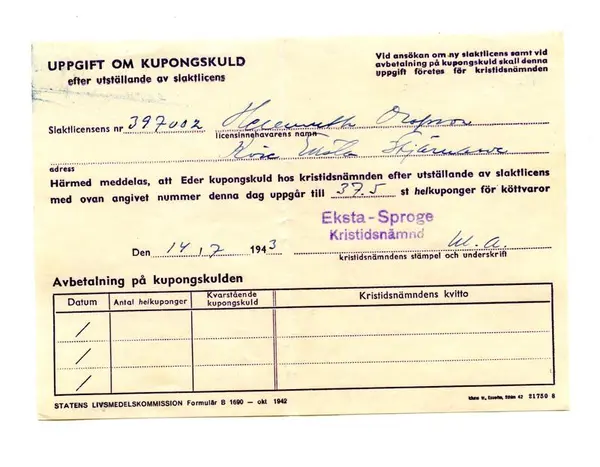 UPPGIFT OM KUPONGSKULD
efter utställande av slaktlicens
Vid ansökan om ny slaktlicens samt vid
avbetalning på kupongskuld skall denna
uppgift företes för kristidsnämnden
Slaktlicensens nr 397002
licensinnehavarens namn
adress
Härmed meddelas, att Eder kupongskuld hos kristidsnämnden efter utställande av slaktlicens
med ovan angivet nummer denna dag uppgår till 37.5 st helkuponger för köttvaror
Eksta-Sproge
Kristidsnämnd
Den 14/7 1943
M.A.
kristidsnämndens stämpel och underskrift
Avbetalning på kupongskulden
Datum Antal helkuponger Kvarstående kupongskuld Kristidsnämndens kvitto
/
/
/
STATENS LIVSMEDELSKOMMISSION Formulär B 1690 – okt 1942
31750 8